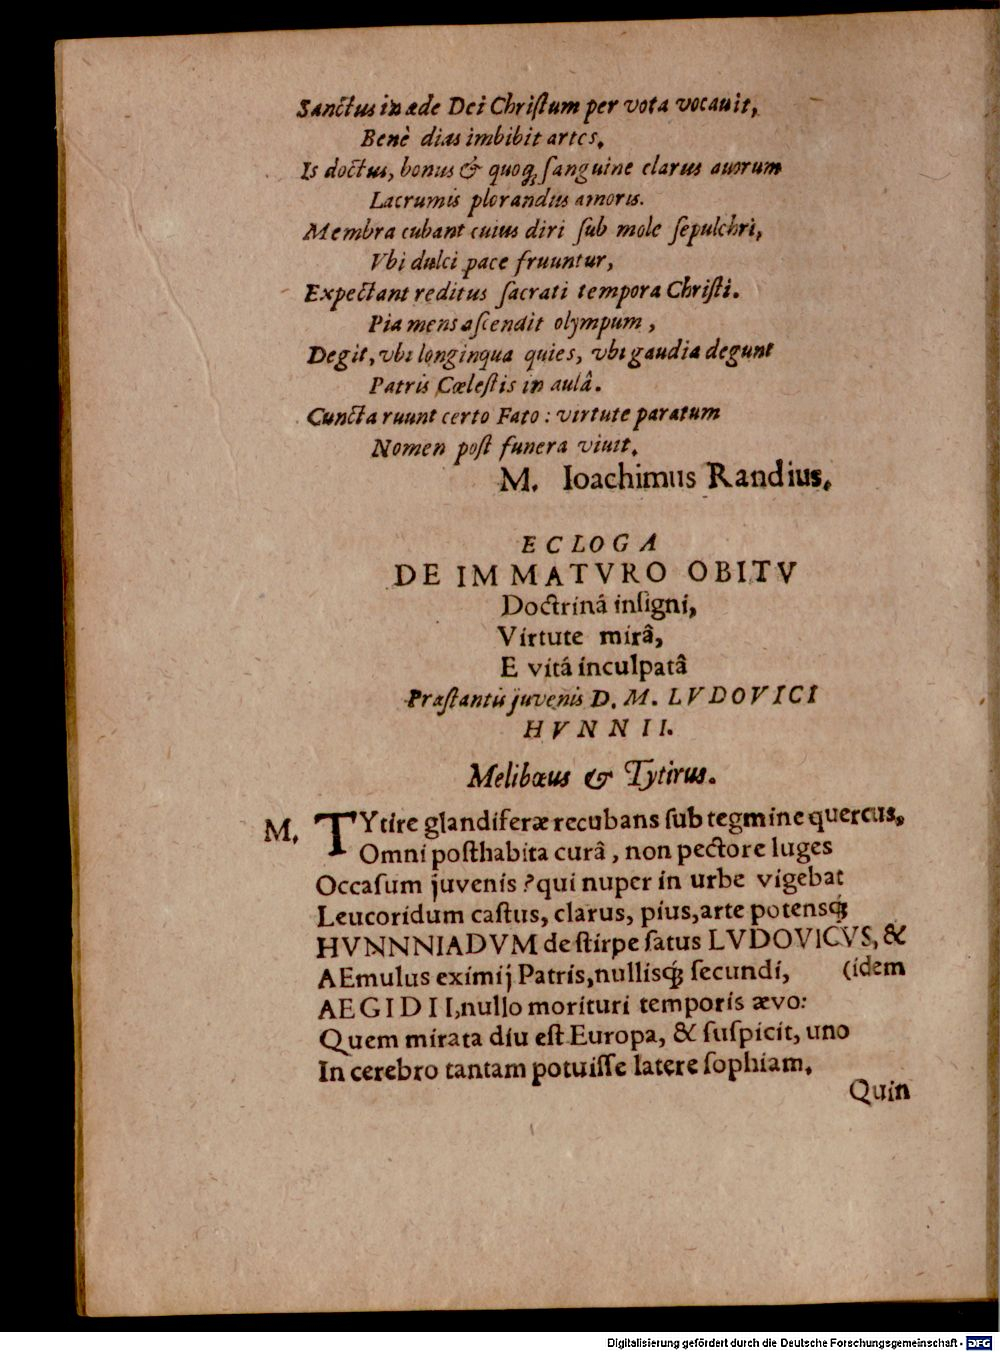 Sanctus in æde Dei Chriſtum per vota vocauit,
Benè dias imbibit artes.
Is doctus, bonus & quoq; ſanguine clarus auorum
Lacrumis plorandus amoris.
Membra cubant cuius diri ſub mole ſepulchri,
Vbi dulci pace fruuntur,
Expectant reditus ſacrati tempora Chriſti.
Pia mens aſcendit olympum,
Degit, vbi longinqua quies, vbi gaudia degunt
Patris Cœleſtis in aulâ.
Cuncta ruunt certo Fato: virtute paratum
Nomen poſt funera viuit.
M. Ioachimus Randius.
ECLOGA
DE IMMATVRO OBITV
Doctrinâ inſigni,
Virtute mirâ,
E vitá inculpatâ
Præſtantis juvenis D. M. LVDOVICI
HVNNII.
Melibœus & Tytirus.
M. TYtire glandiferæ recubans ſub tegmine quercus,
Omni poſthabita curâ, non pectore luges
Occaſum juvenis? qui nuper in urbe vigebat
Leucoridum caſtus, clarus, pius, arte potensq;
HVNNNIADVM de ſtirpe ſatus LVDOVICVS, &
AEmulus eximij Patris, nullisq; ſecundi, (idem
AEGIDII, nullo morituri temporis ævo:
Quem mirata diu eſt Europa, & ſuſpicit, uno
In cerebro tantam potuiſſe latere ſophiam.
Quin
Digitalisierung gefördert durch die Deutsche Forschungsgemeinschaft - DFG